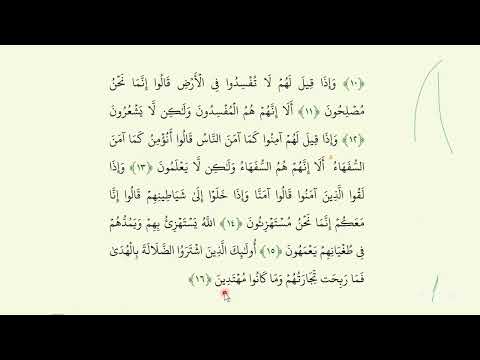 ﴿١٠﴾ وَإِذَا قِيلَ لَهُمْ لَا تُفْسِدُوا فِي الْأَرْضِ قَالُوا إِنَّمَا نَحْنُ
مُصْلِحُونَ ﴿١١﴾ أَلَا إِنَّهُمْ هُمُ الْمُفْسِدُونَ وَلَٰكِن لَّا يَشْعُرُونَ
﴿١٢﴾ وَإِذَا قِيلَ لَهُمْ آمِنُوا كَمَا آمَنَ النَّاسُ قَالُوا أَنُؤْمِنُ كَمَا آمَنَ
السُّفَهَاءُ ۗ أَلَا إِنَّهُمْ هُمُ السُّفَهَاءُ وَلَٰكِن لَّا يَعْلَمُونَ ﴿١٣﴾ وَإِذَا
لَقُوا الَّذِينَ آمَنُوا قَالُوا آمَنَّا وَإِذَا خَلَوْا إِلَىٰ شَيَاطِينِهِمْ قَالُوا إِنَّا
مَعَكُمْ إِنَّمَا نَحْنُ مُسْتَهْزِئُونَ ﴿١٤﴾ اللَّهُ يَسْتَهْزِئُ بِهِمْ وَيَمُدُّهُمْ
فِي طُغْيَانِهِمْ يَعْمَهُونَ ﴿١٥﴾ أُولَٰئِكَ الَّذِينَ اشْتَرَوُا الضَّلَالَةَ بِالْهُدَىٰ
فَمَا رَبِحَت تِّجَارَتُهُمْ وَمَا كَانُوا مُهْتَدِينَ ﴿١٦﴾